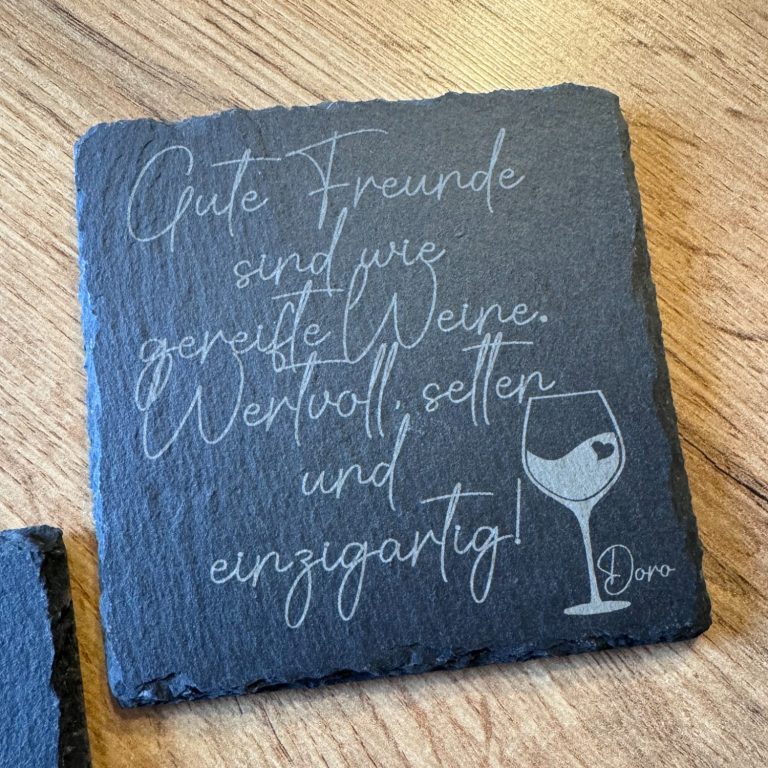 Gute Freunde
sind wie
gereifte Weine.
Wertvoll, selten
und
einzigartig!
Doro